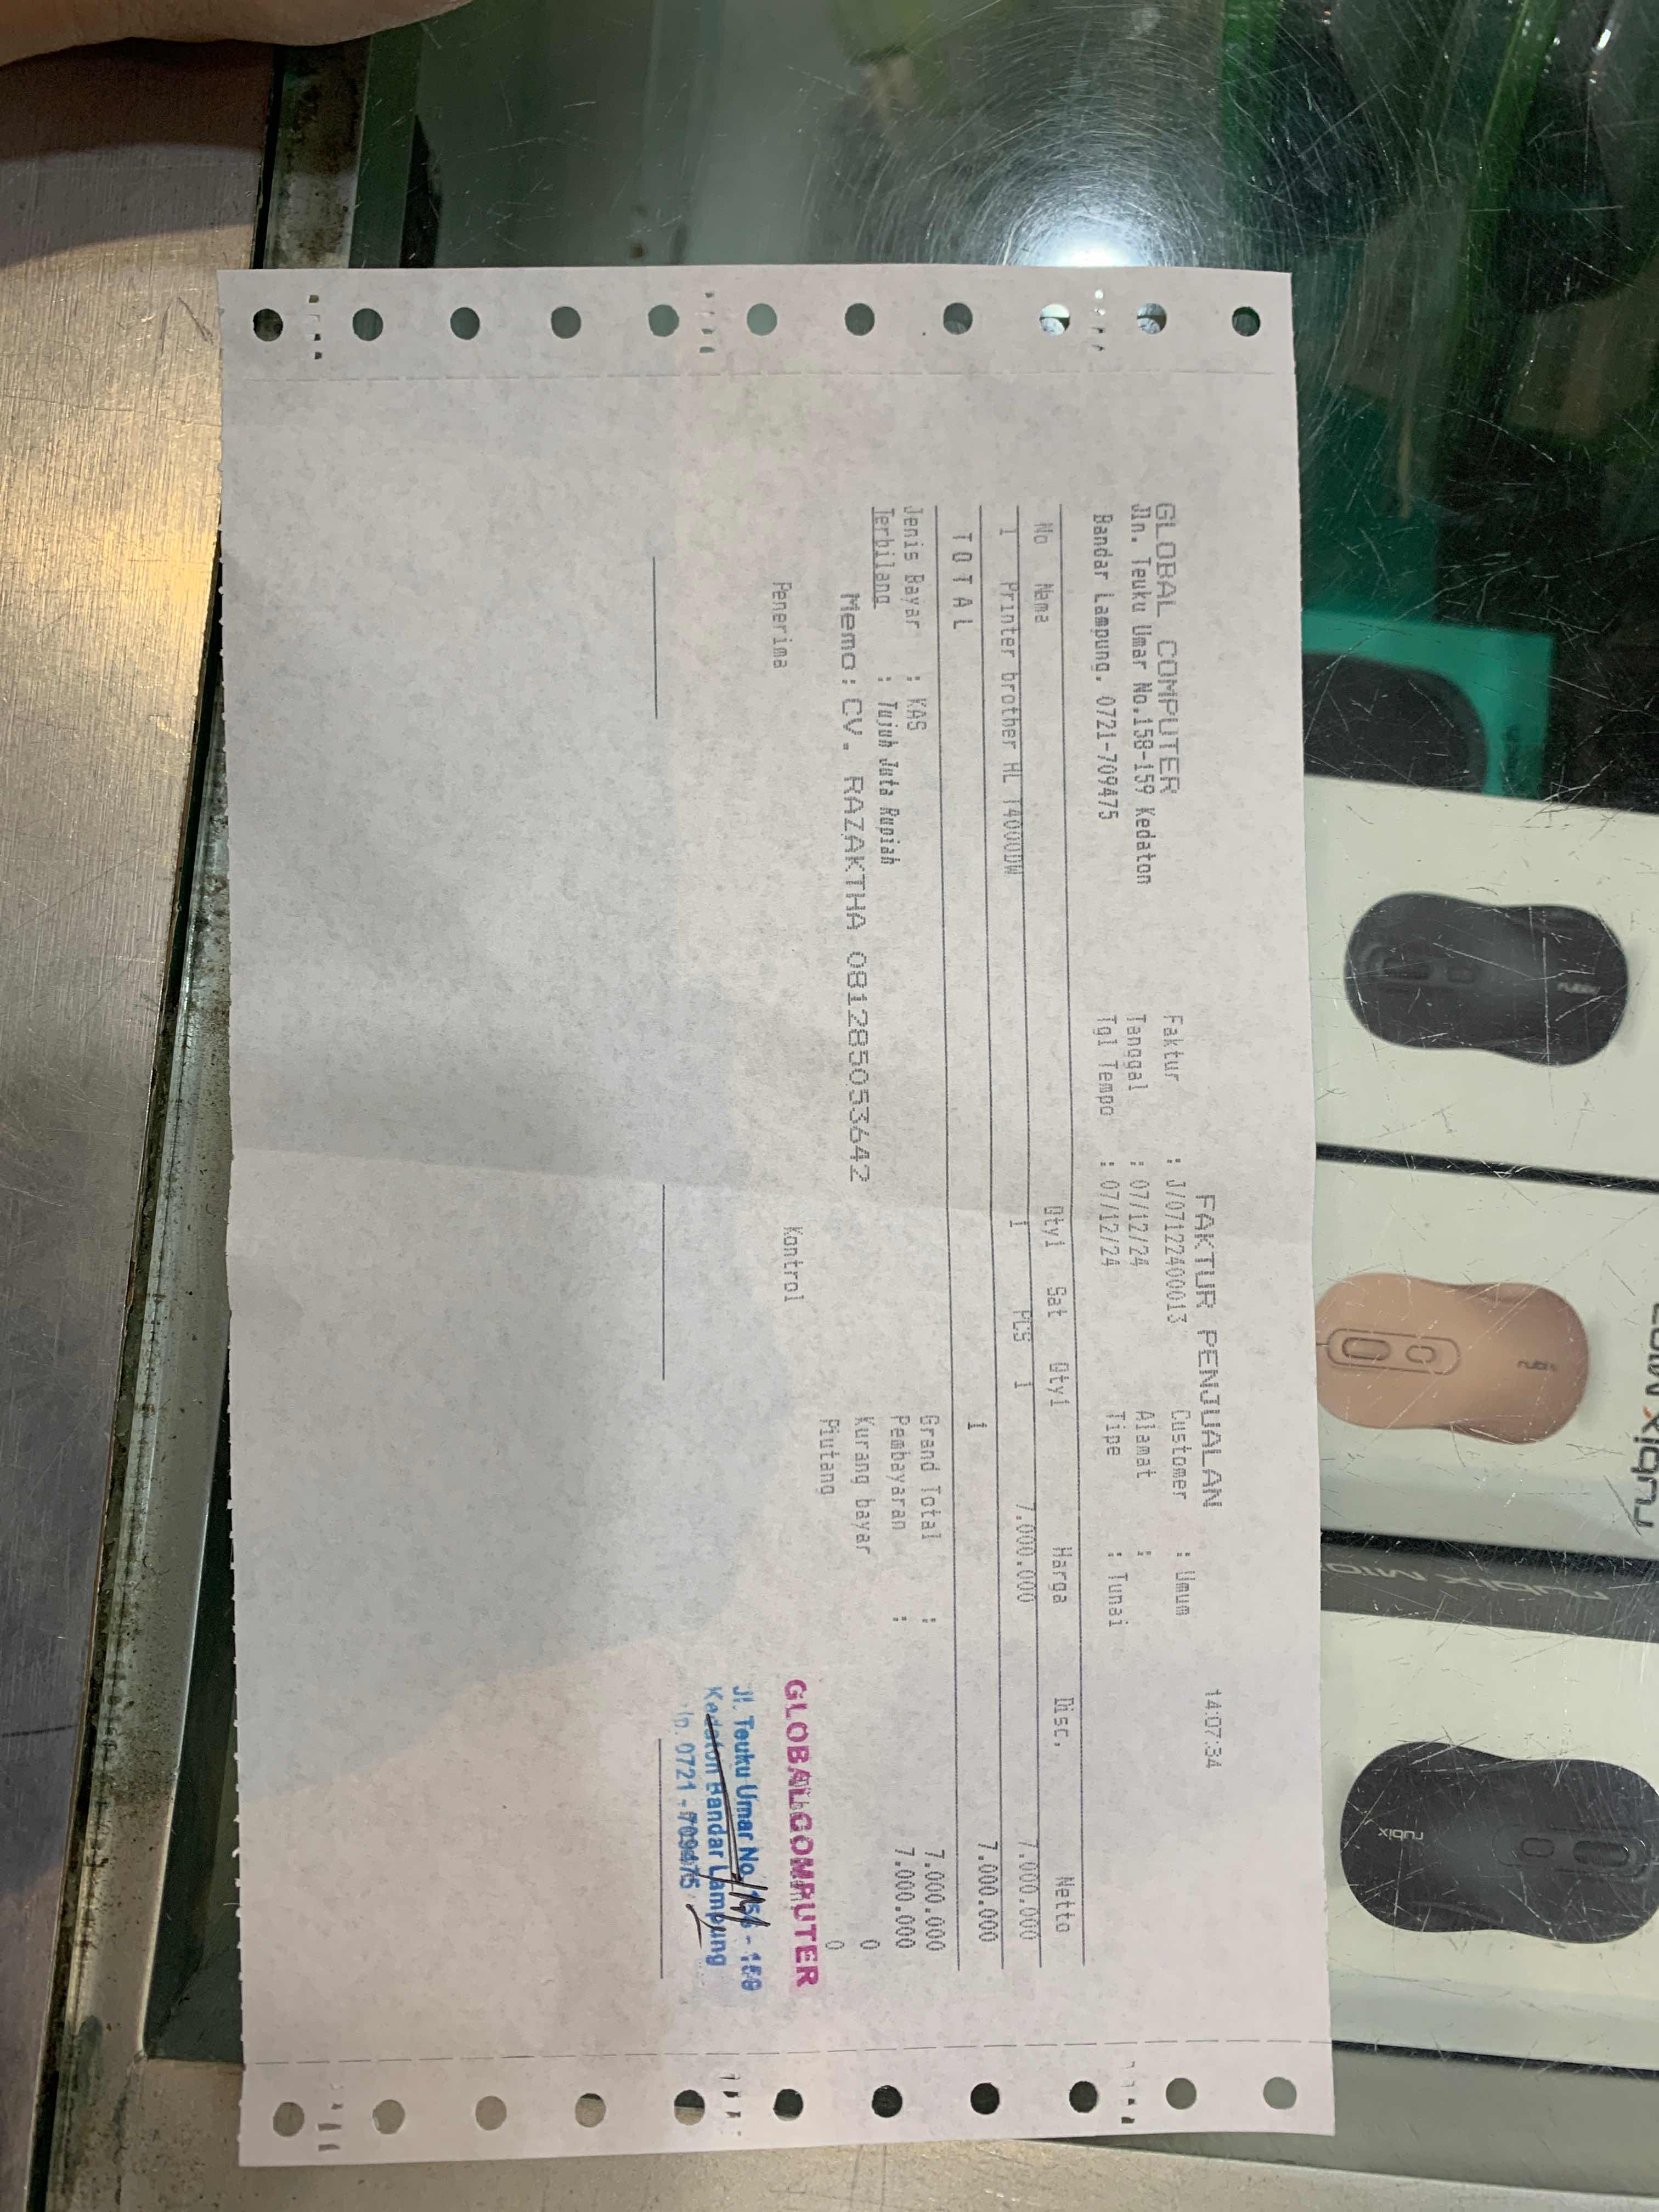 FAKTUR PENJUALAN 14:07:34
GLOBAL COMPUTER
Jln. Teuku Umar No.158-159 Kedaton
Bandar Lampung. 0721-709475
Faktur : J/07122400013
Tanggal : 07/12/24
Tgl Tempo : 07/12/24
Customer : Umum
Alamat :
Tipe : Tunai
No Nama Qty1 Sat Qty1 Harga Disc. Netto
1 Printer brother HL T4000DW 1 PCS 1 7.000.000 7.000.000
T O T A L 1 7.000.000
Jenis Bayar : KAS
Terbilang : Tujuh Juta Rupiah
Memo : CV. RAZAKTHA 081285053642
Grand Total : 7.000.000
Pembayaran : 7.000.000
Kurang bayar 0
Piutang 0
Penerima Kontrol
GLOBAL COMPUTER
Jl. Teuku Umar No. - 159
Kedaton Bandar Lampung
0721 - 709475
rubix
rubix
rubix
rubix
rubix M10